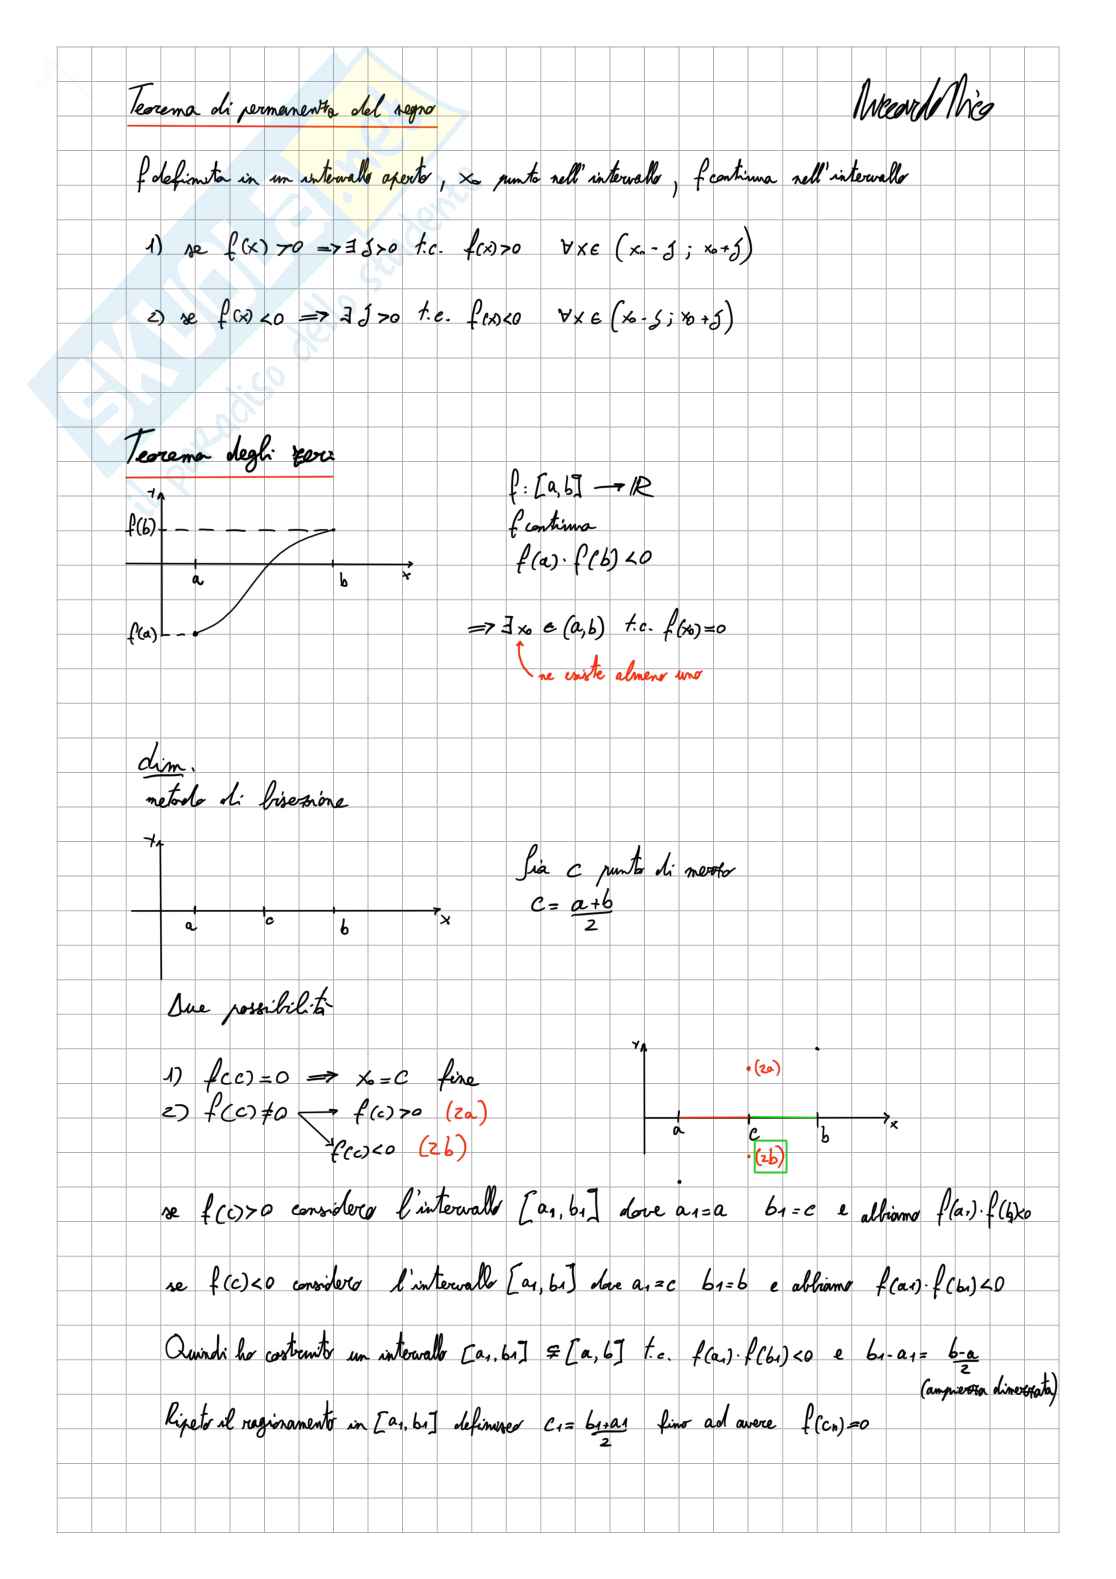 Teorema di permanenza del segno
Riccardo Nico
f definita in un intervallo aperto, x₀ punto nell'intervallo, f continua nell'intervallo
1) se f(x) > 0 => ∃ δ>0 t.c. f(x)>0 ∀x∈ (x₀ - δ ; x₀+δ)
2) se f(x) < 0 => ∃ δ >0 t.c. f(x)<0 ∀x ∈ (x₀ - δ ; x₀ +δ)
SKUOLA.net
il paradiso dello studente
Teorema degli zeri
y
f(b)
a
b
x
f(a)
f: [a,b] → ℝ
f continua
f(a) · f(b) <0
=> ∃ x₀ ∈ (a,b) t.c. f(x₀)=0
ne esiste almeno uno
dim.
metodo di bisezione
y
a
c
b
x
Sia c punto di mezzo
c = a+b/2
Due possibilità
1) f(c) = 0 => x₀ = c fine
2) f(c) ≠ 0 → f(c) >0 (2a)
f(c) <0 (2b)
y
(2a)
a
c
b
x
(2b)
se f(c)>0 considero l'intervallo [a₁, b₁] dove a₁=a b₁=c e abbiamo f(a₁)·f(b₁)<0
se f(c)<0 considero l'intervallo [a₁, b₁] dove a₁=c b₁=b e abbiamo f(a₁)·f(b₁)<0
Quindi ho costruito un intervallo [a₁, b₁] ⊊ [a, b] t.c. f(a₁)·f(b₁)<0 e b₁-a₁= b-a/2
(ampiezza dimezzata)
Ripeto il ragionamento in [a₁, b₁] definisco c₁= b₁+a₁/2 fino ad avere f(cₙ)=0